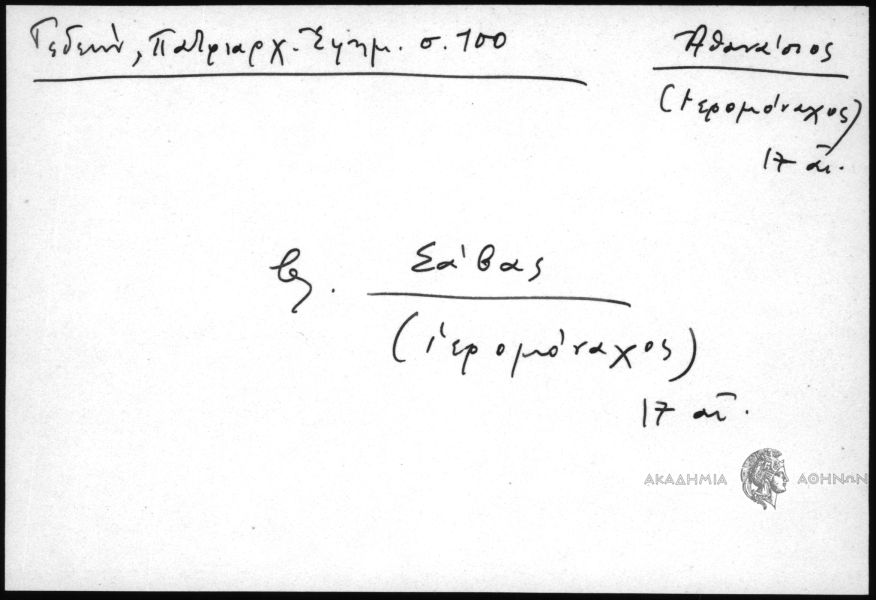 Γεδεών, Πατριαρχ. Ἐφημ. σ. 100
Ἀθανάσιος
(ἱερομόναχος)
17 αἰ.
βλ. Σάβας
(ἱερομόναχος)
17 αἰ.
ΑΚΑΔΗΜΙΑ ΑΘΗΝΩΝ